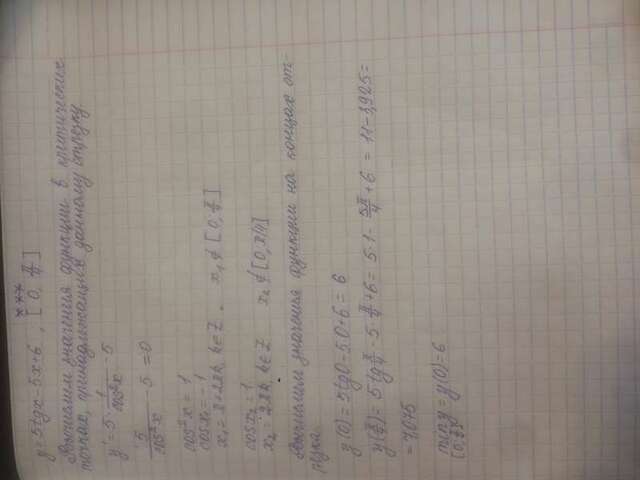 y = 5tgx - 5x + 6 , [0, π/4]
Вычислим значения функции в критических
точках, принадлежащих данному отрезку
y' = 5 · 1/cos²x - 5
5/cos²x - 5 = 0
cos²x = 1
cosx₁ = -1
x₁ = π + 2πk, k∈Z . x₁ ∉ [0, π/4]
cosx₂ = 1
x₂ = 2πk, k∈Z x₂ ∉ [0, π/4]
Вычислим значения функции на концах от-
резка.
y(0) = 5tg0 - 5·0 + 6 = 6
y(π/4) = 5tg π/4 - 5·π/4 + 6 = 5·1 - 5π/4 + 6 = 11 - 3,925 =
= 7,075
min y = y(0) = 6